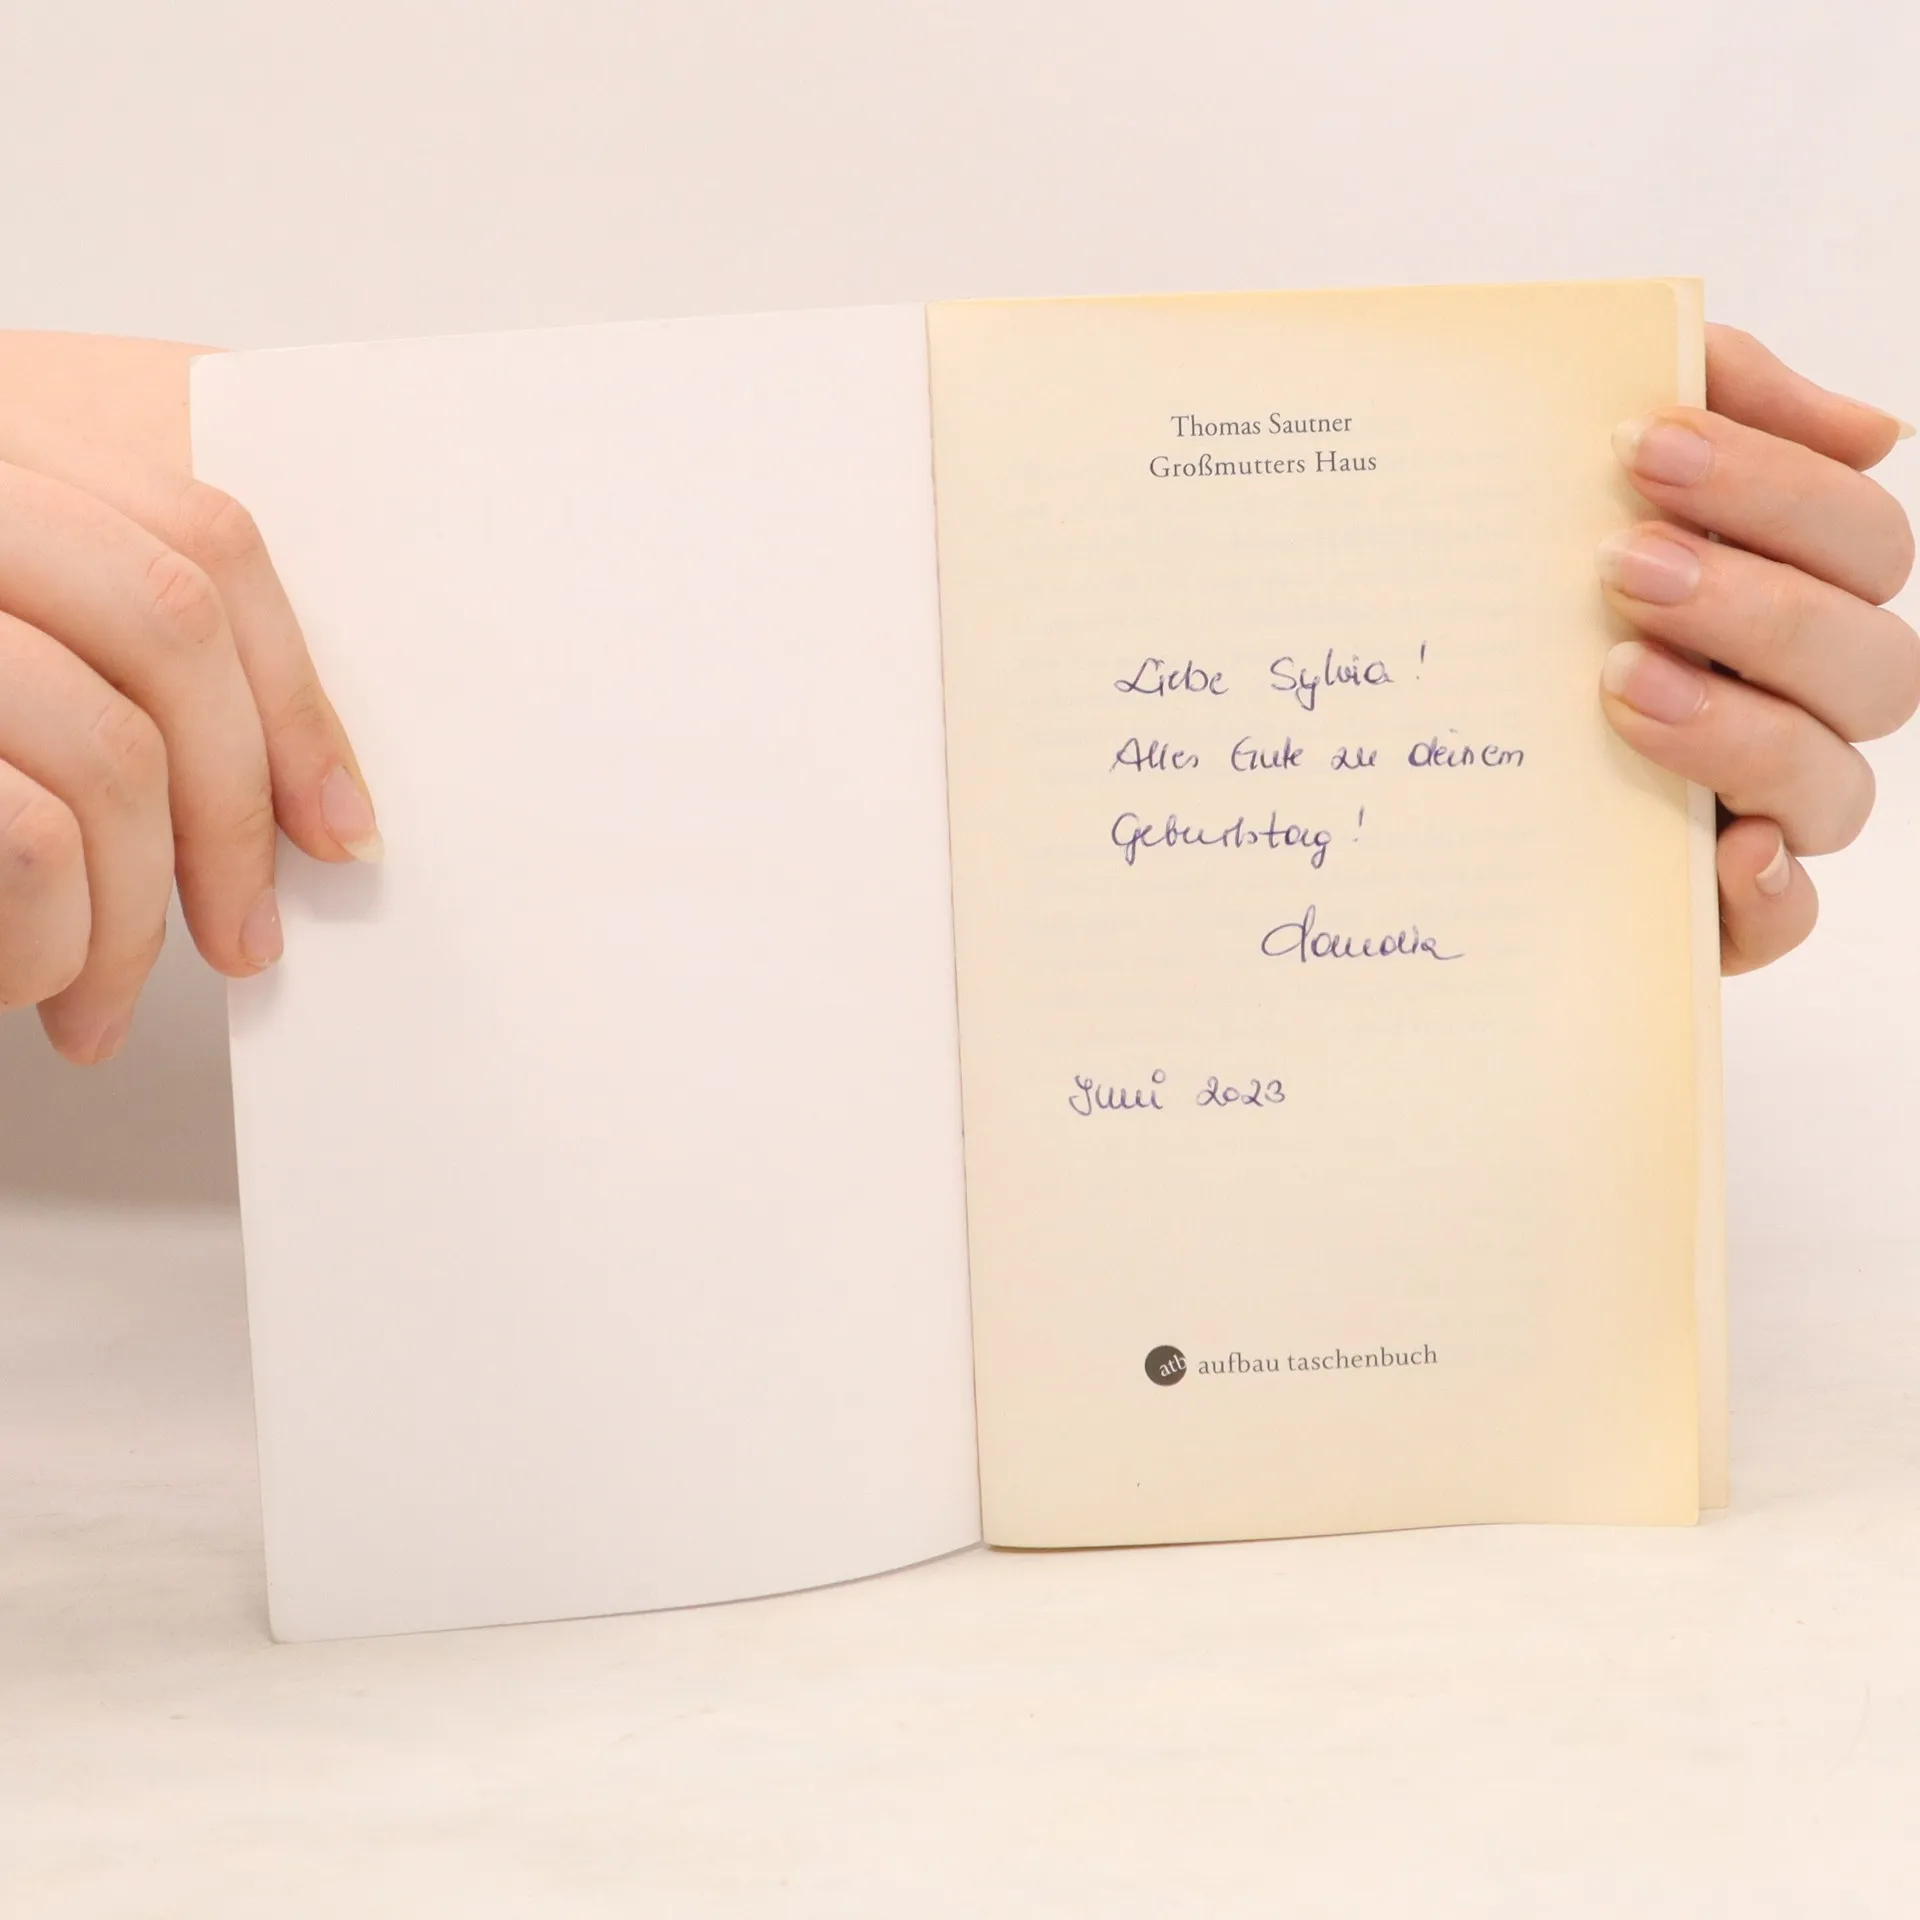 Thomas Sautner
Großmutters Haus
Liebe Sylvia!
Alles Gute zu deinem
Geburtstag!
Claudia
Juni 2023
atb aufbau taschenbuch